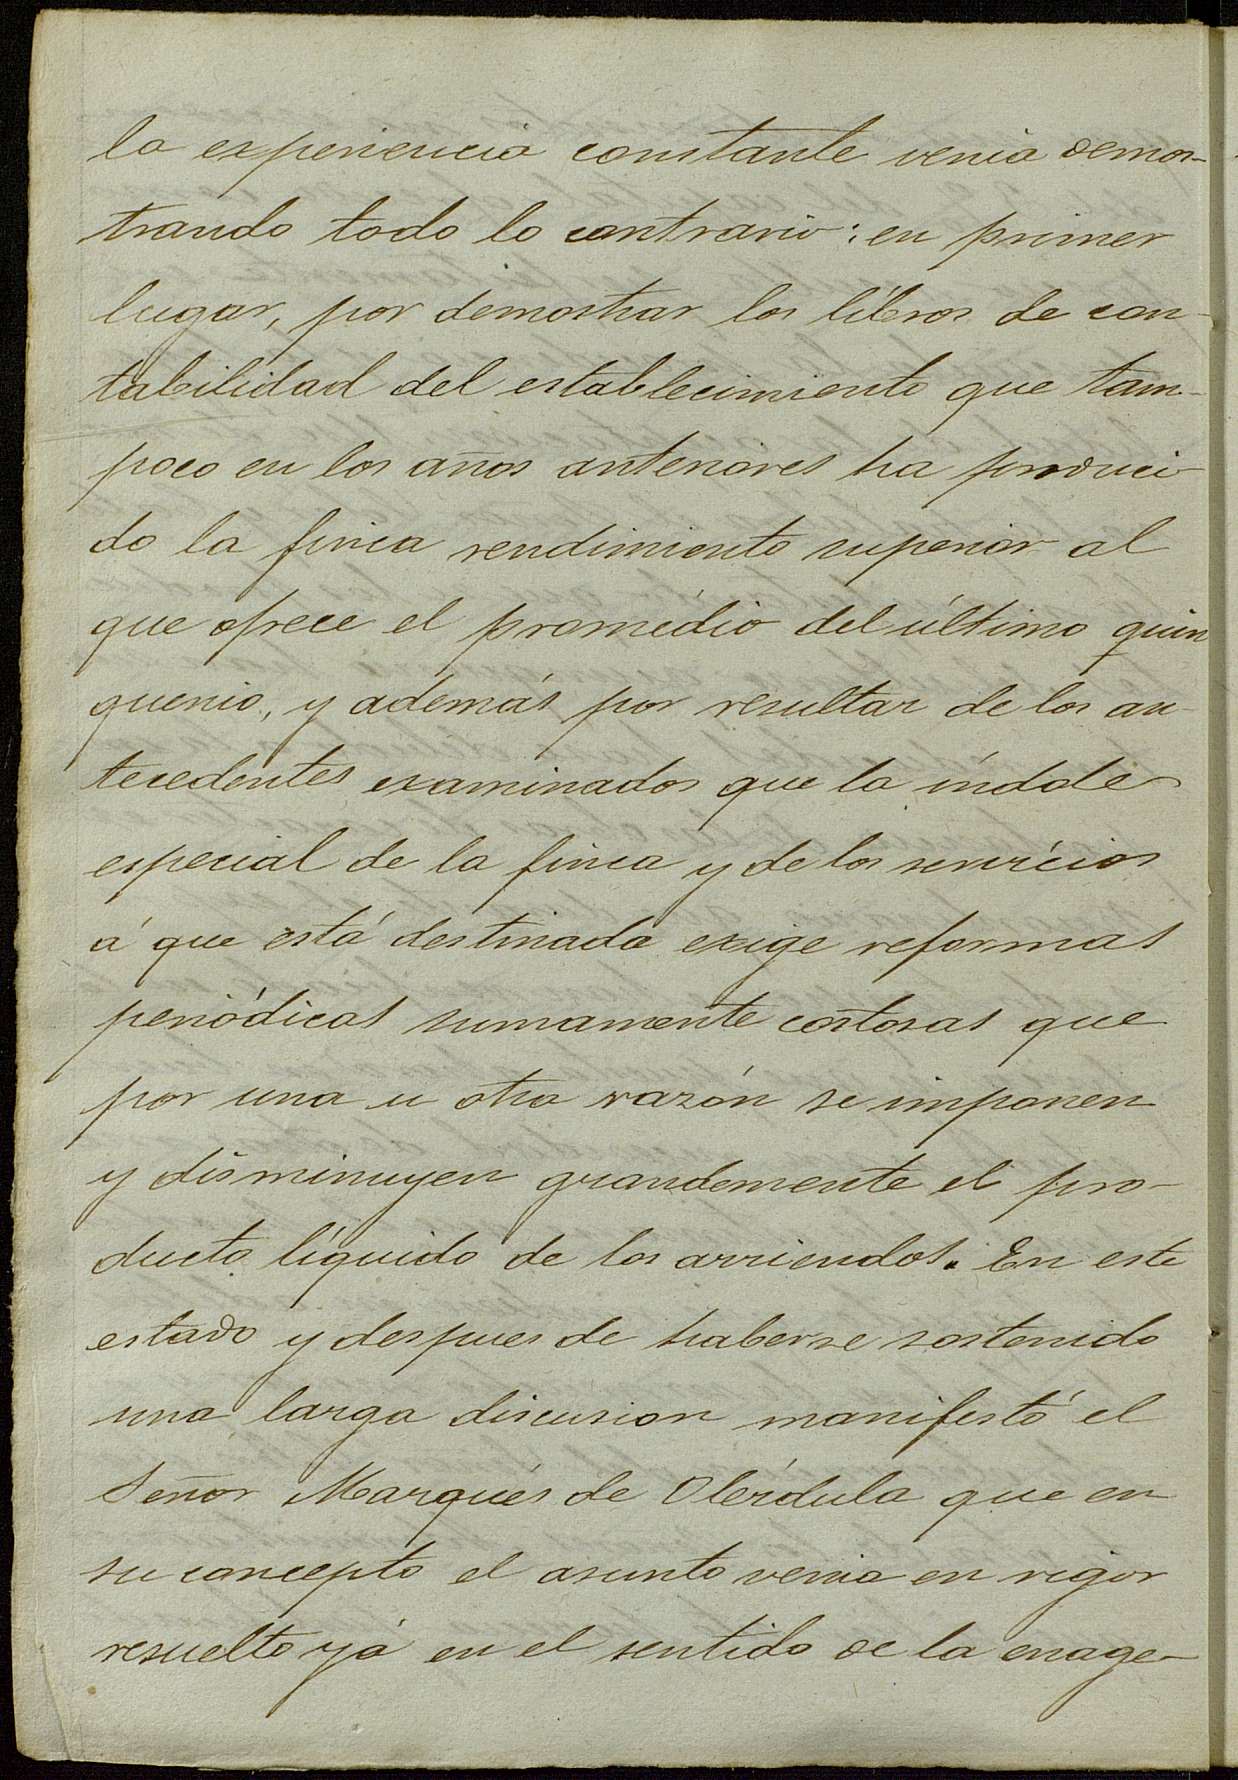 la experiencia constante venia demos-
trando todo lo contrario; en primer
lugar, por demostrar los libros de con-
tabilidad del establecimiento que tam-
poco en los años anteriores ha produci-
do la finca rendimiento superior al
que ofrece el promédio del último quin
quenio, y además por resultar de los an-
tecedentes examinados que la índole
especial de la finca y de los servicios
á que está destinada exige reformas
periódicas sumamente costosas que
por una u otra razón se imponen
y disminuyen grandemente el pro-
ducto líquido de los arriendos. En este
estado y despues de haberse sostenido
una larga discusion manifestó el
Señor Marqués de Olérdula que en
su concepto el asunto venia en rigor
resuelto yá en el sentido de la enage-